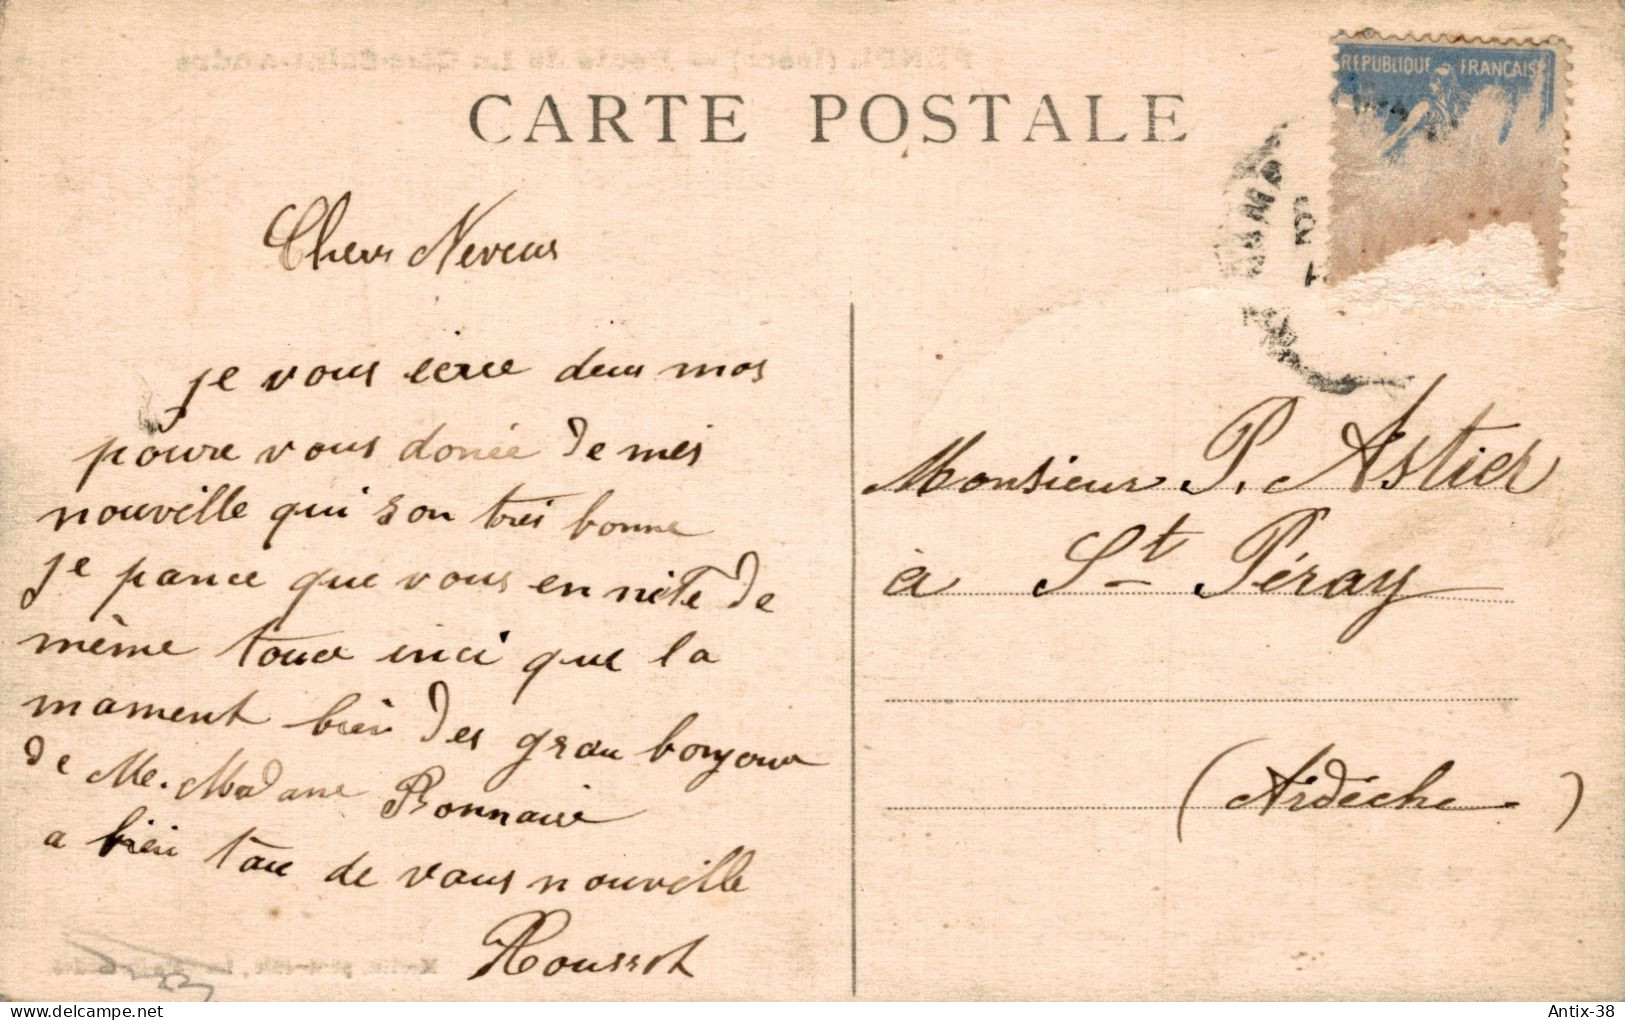 CARTE POSTALE
REPUBLIQUE FRANÇAISE
Chers Neveus
je vous écrce deus mos
pourre vous donée de mes
nouvelle qui son tres bonne
je pance que vous en nete de
même touce inci que la
mament bien des gran bonjour
de Me. Madame Bonnaire
a bien tau de vaus nouvelle
Roussot
Monsieur P. Astier
à St Péray
(Ardèche)
Antix-38